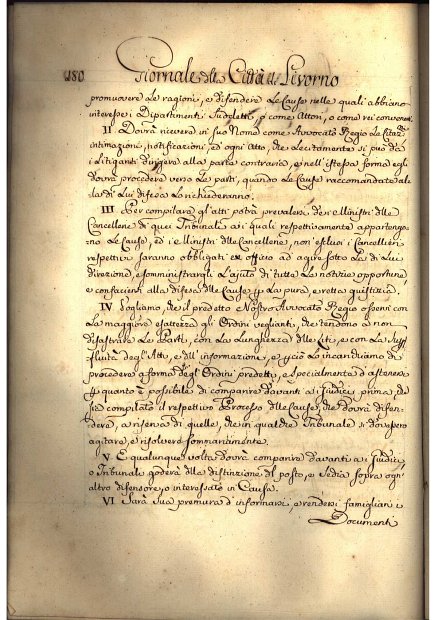 180 Giornale della Città di Livorno
promuovere le ragioni, e difendere le Cause nelle quali abbiano
interesse i Dipartimenti suddetti, o come Attori, o come rei convenuti
II Dovrà ricevere in suo Nome come Avvocato Regio le Citazni
intimazioni, notificazioni, ed ogni Atto, che lecitamente si può da
i Litiganti dirigere alla parte contraria, e nell'istessa forma egli
dovrà procedere verso le parti, quando le Cause raccomandate al
la di Lui difesa lo richiederanno
III Per compilare gl'atti potrà prevalersi dei Ministri delle
Cancellerie di quei Tribunali a i quali respettivamente apparteng
no le Cause, ed i Ministri delle Cancellerie, non esclusi i Cancellieri
respettivi saranno obbligati ex officio ad agire sotto la di Lui
direzione, e somministrargli l'ajuto di tutte le notizie opportune
e confacienti alla difesa delle Cause p la pura, e retta giustizia
IV Vogliamo, che il predetto Nostro Avvocato Regio osservi con
la maggiore esattezza gli Ordini veglianti, che tendono a non
disastrare le Parti, con la lunghezza delle liti, e con la sup
fluità degl'Atti, e dell'informazioni, e p ciò lo incarichiamo di
procedere a forma degl'Ordini predetti, e specialmente d'astenersi
p quanto è possibile di comparire davanti a i Giudici, prima, che
sia compilato il respettivo Processo delle Cause, che dovrà difen
dere, a riserva di quelle, che in qualche Tribunale si dovessero
agitare, e risolvere sommariamente.
V E qualunque volta dovrà comparire davanti a i Giudici,
o Tribunali goderà della distinzione del posto, e Sedia sopra ogn'
altro difensore, o interessato in Causa.
VI Sarà sua premura d'informarsi, e rendersi famigliari i
Documenti